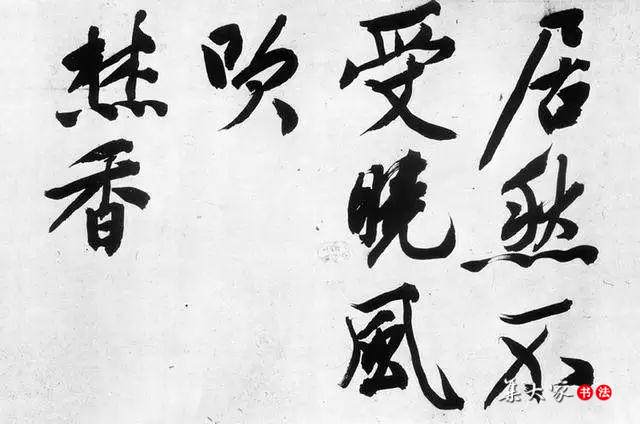 居然不
受曉風
吹
焚香
集大家 书法